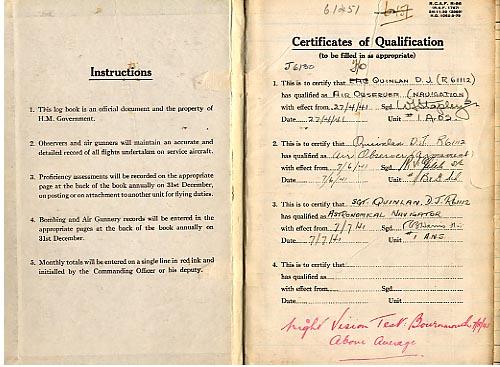 Instructions
1. This log book is an official document and the property of
H.M. Government.
2. Observers and air gunners will maintain an accurate and
detailed record of all flights undertaken on service aircraft.
3. Proficiency assessments will be recorded on the appropriate
page at the back of the book annually on 31st December,
on posting or on attachment to another unit for flying duties.
4. Bombing and Air Gunnery records will be entered in the
appropriate pages at the back of the book annually on
31st December.
5. Monthly totals will be entered on a single line in red ink and
initialled by the Commanding Officer or his deputy.
R.C.A.F. R-66
Certificates of Qualification
(to be filled in as appropriate)
1. This is to certify that QUINLAN D.J. (R61112)
has qualified as AIR OBSERVER (NAVIGATION)
with effect from 27/4/41 Sgd.
Date 27/4/41 Unit #1 A.O.S.
2. This is to certify that Quinlan D.J. R61112
has qualified as Air Observer (Armament)
with effect from 7/6/41 Sgd.
Date 7/6/41 Unit
3. This is to certify that SGT. QUINLAN, D.J. R61112
has qualified as ASTRONOMICAL NAVIGATOR
with effect from 7/7/41 Sgd.
Date 7/7/41 Unit #1 ANS
4. This is to certify that
has qualified as
with effect from Sgd.
Date Unit
Night Vision Test: Bournemouth
Above Average